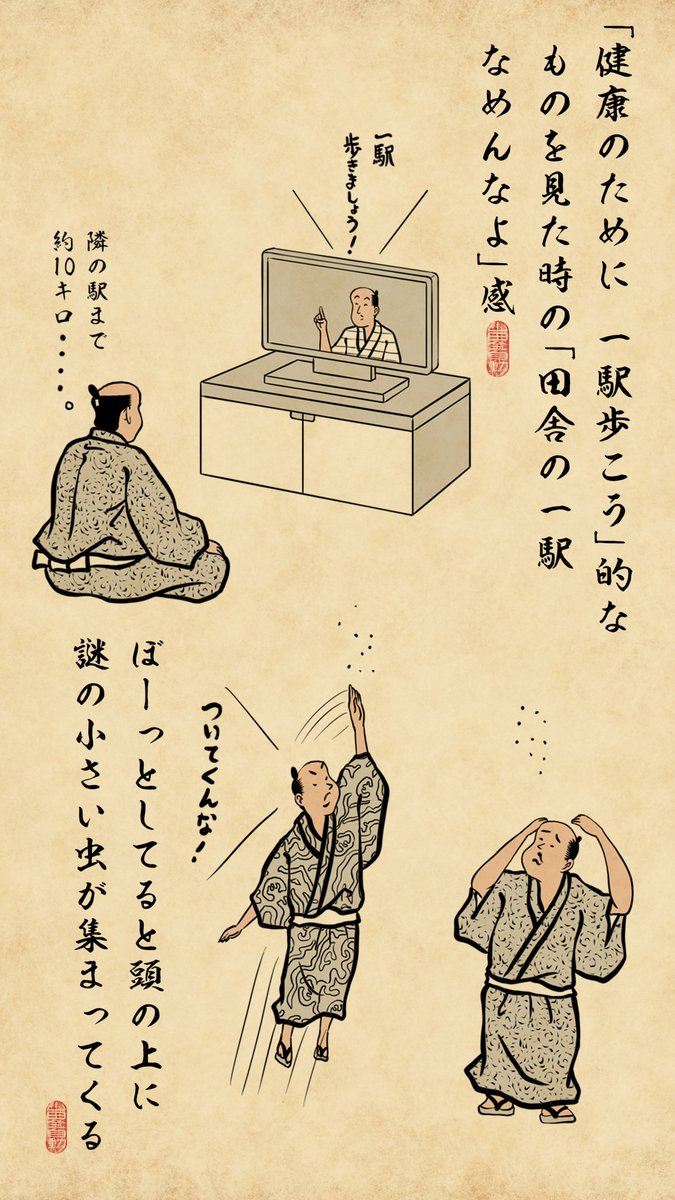 「健康のために 一駅歩こう」的な
ものを見た時の「田舎の一駅
なめんなよ」感
一駅
歩きましょう!
隣の駅まで
約10キロ・・・・。
ついてくんな!
ぼーっとしてると頭の上に
謎の小さい虫が集まってくる